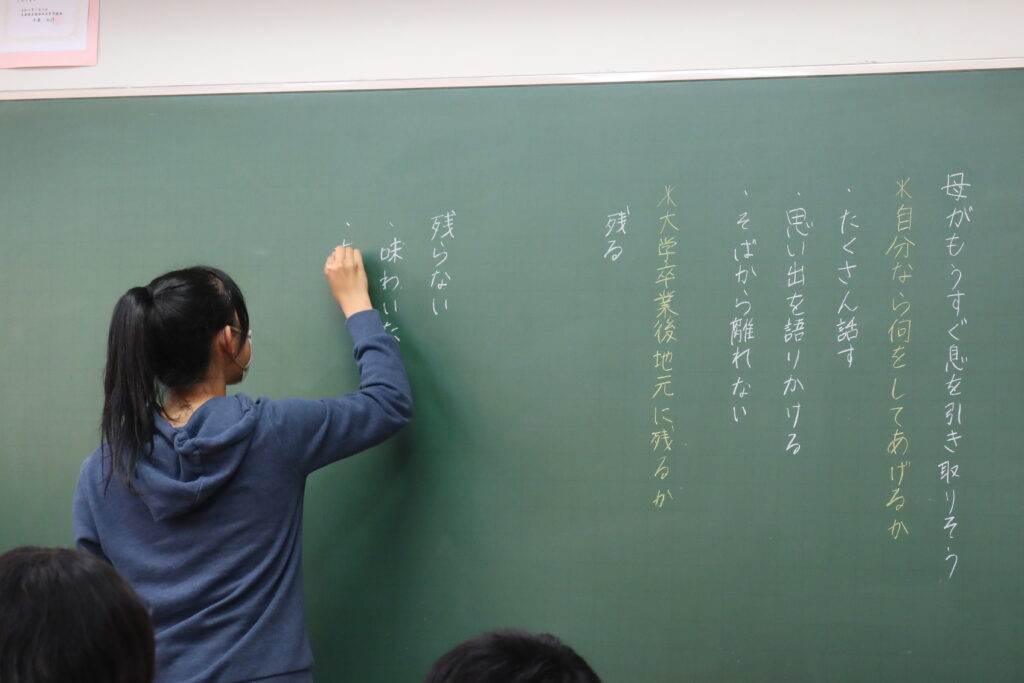 母がもうすぐ息を引き取りそう
＊自分なら何をしてあげるか
・たくさん話す
・思い出を語りかける
・そばから離れない
＊大学卒業後地元に残るか
残る
残らない
・味わいた